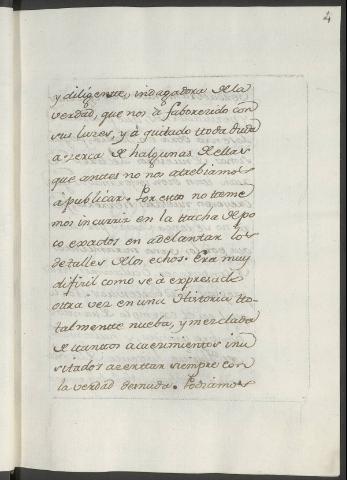 4
y diligentte indagadora de la
verdad, que nos à faborecido con
sus luzes, y à quitado ttoda duda
azerca de halgunas de ellas
que anttes no nos atrebiamos
à publicar. Por estto no tteme
mos incurrir en la ttacha de po
co exactos en adelantar los
detalles de los echos. Era muy
difizil como se à expresado
ottra vez en una Historia tto-
talmentte nueba, y mezclada
de ttanttos acaezimientos inu
sitados azerttar siempre con
la verdad desnuda. Podriamos